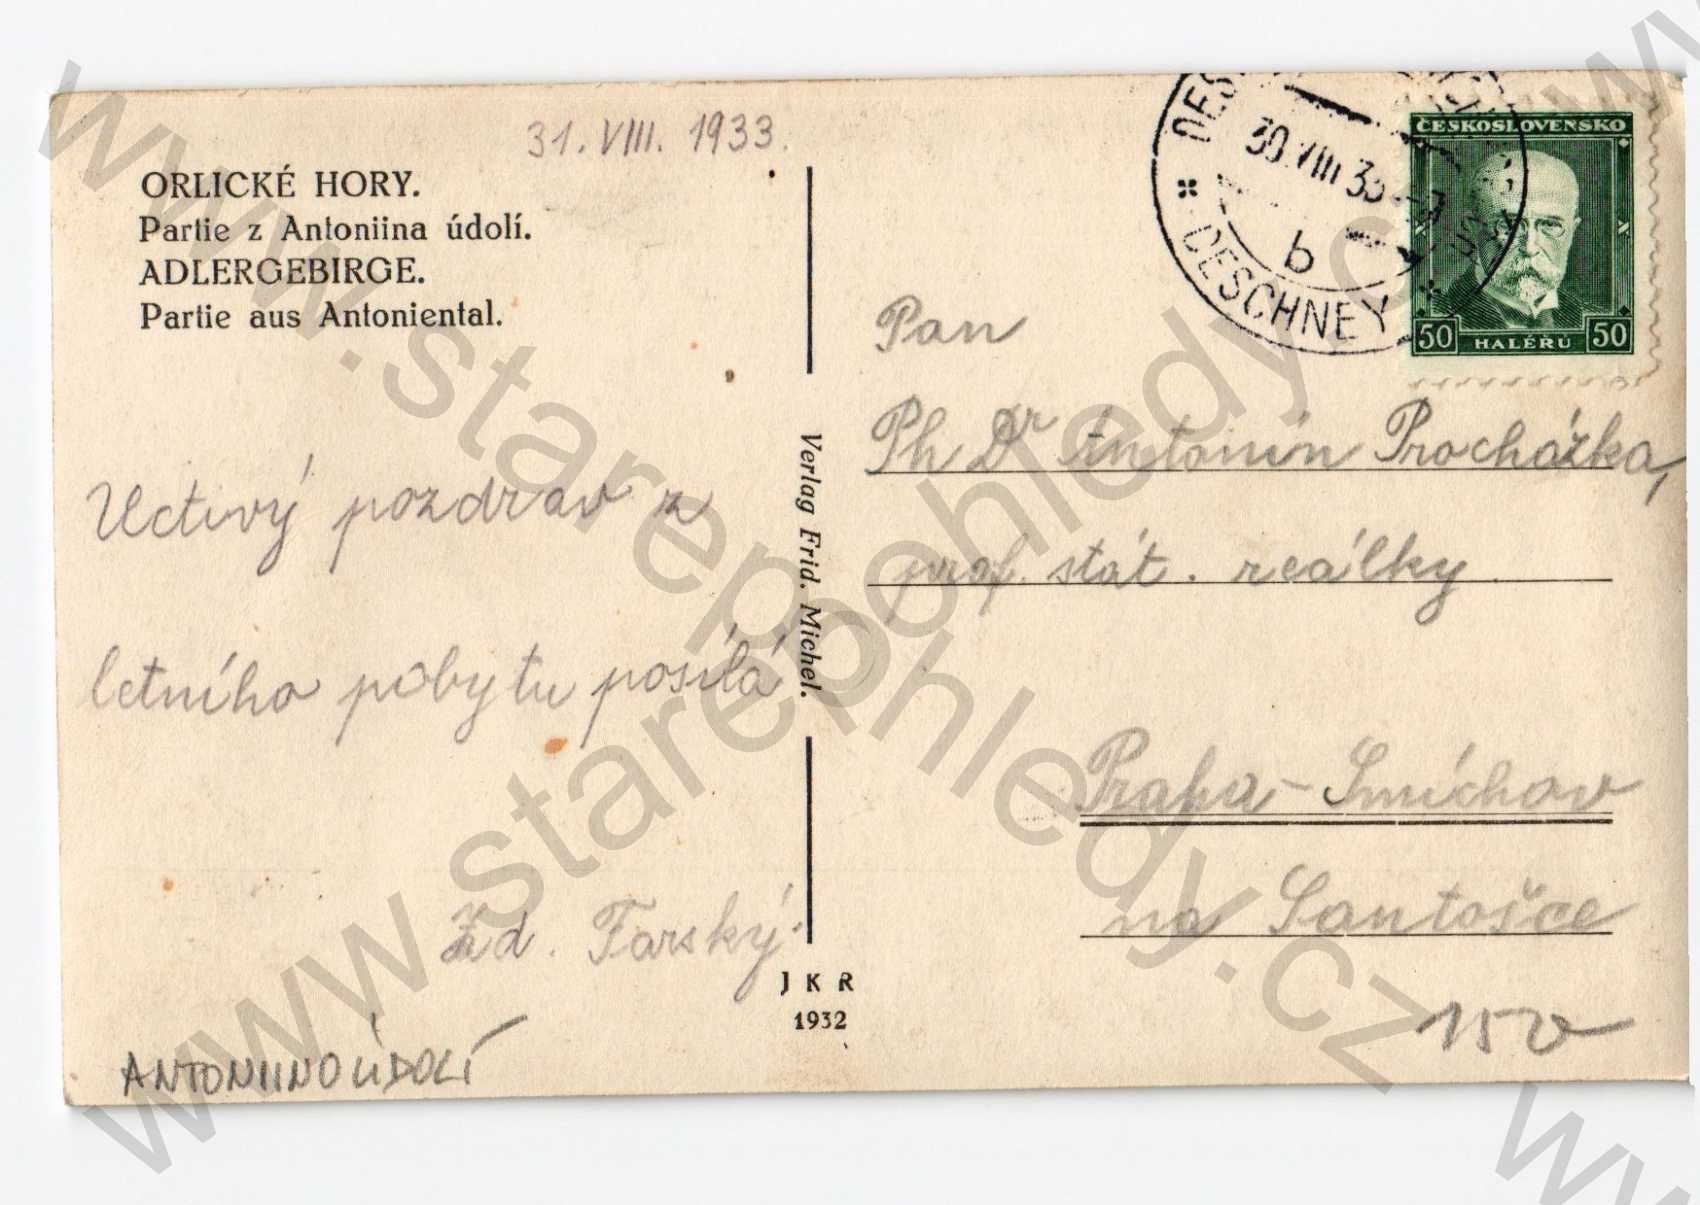 31. VIII. 1933.
ORLICKÉ HORY.
Partie z Antoniina údolí.
ADLERGEBIRGE.
Partie aus Antoniental.
Uctivý pozdrav z
letního pobytu posílá
Zd. Farský.
ANTONIINO ÚDOLÍ
Verlag Frid. Michel.
J K R
1932
30.VIII 33
b
DESCHNEY
ČESKOSLOVENSKO
50 HALÉŘŮ 50
Pan
Ph Dr Antonín Procházka,
prof. stát. reálky
Praha - Smíchov
na Santošce
150
www.starepohledy.cz
www.starepohledy.cz